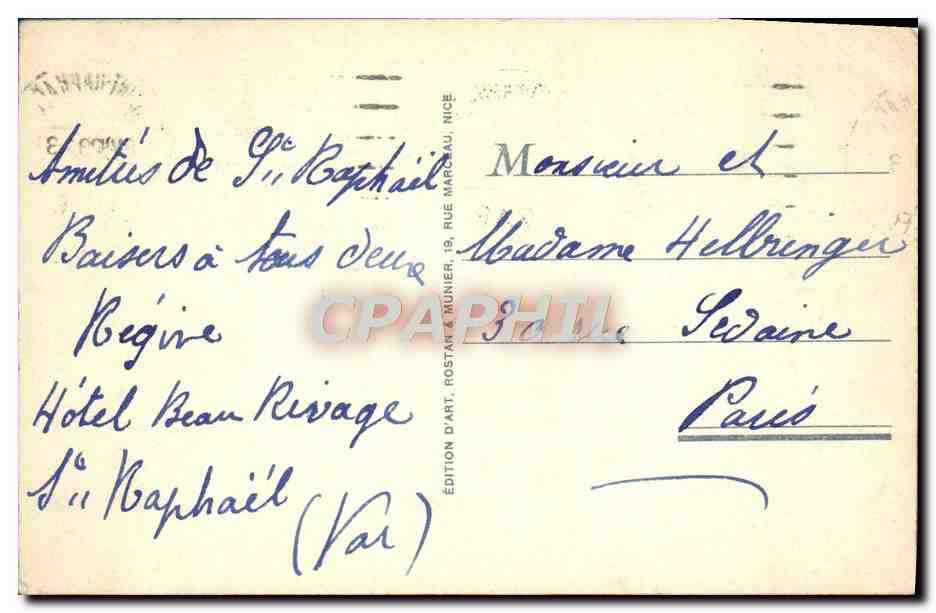 Amitiés de St Raphaël
Baisers à tous deux
Régine
Hôtel Beau Rivage
St Raphaël
(Var)
ÉDITION D'ART, ROSTAN & MUNIER, 19, RUE MARCEAU, NICE
Monsieur et
Madame Hellbringer
30 rue Sedaine
Paris
CPAPHIL